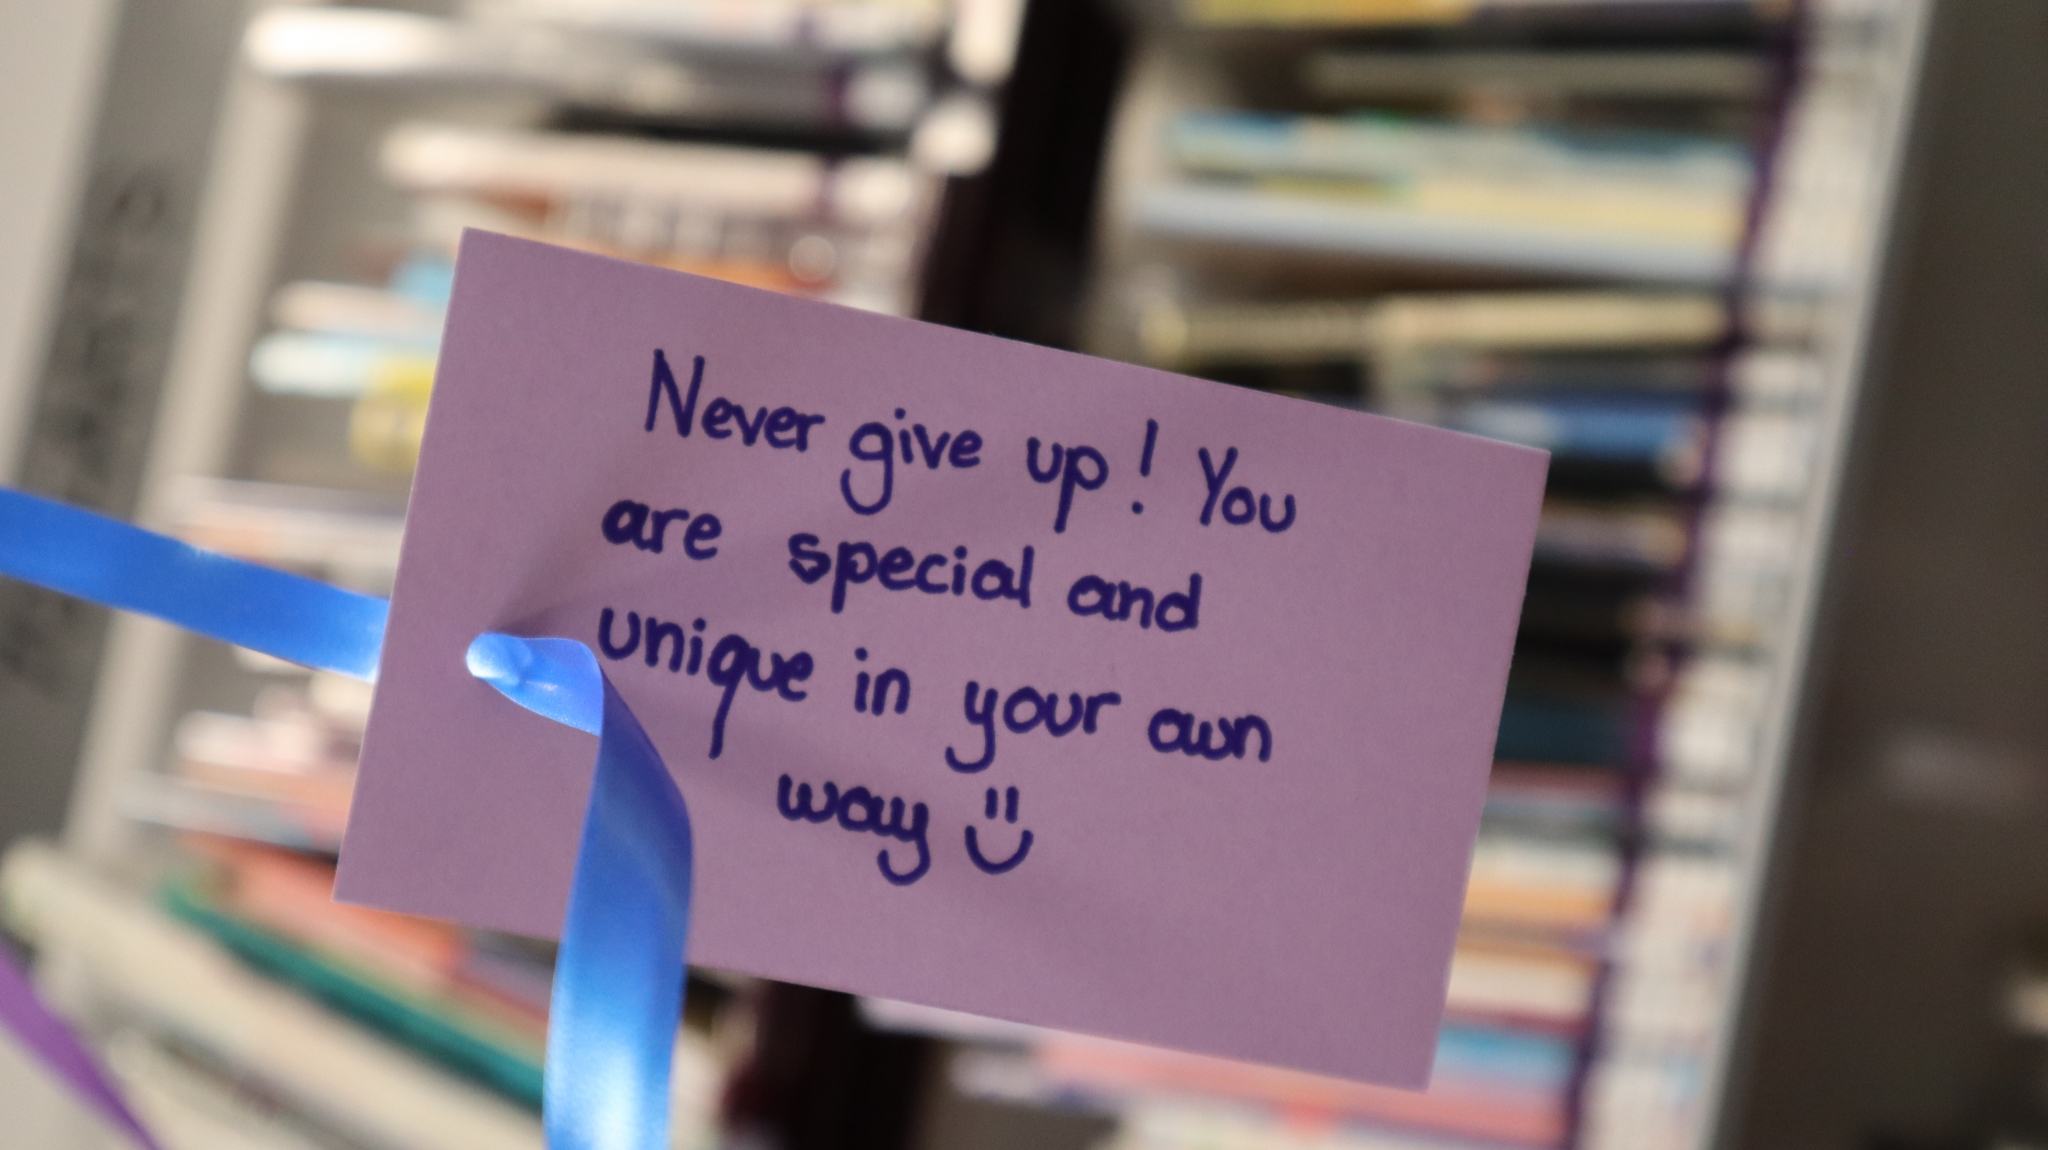 Never give up! You
are special and
unique in your own
way